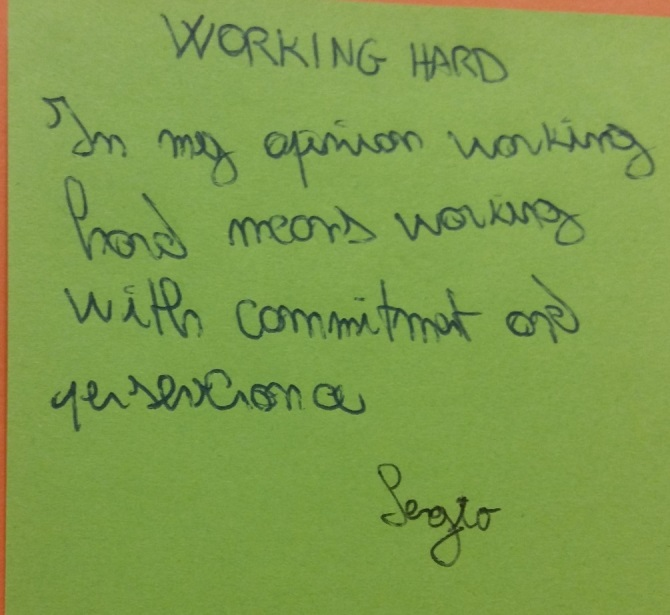 WORKING HARD
"In my opinion working
hard means working
with commitment and
perseverance
Sergio